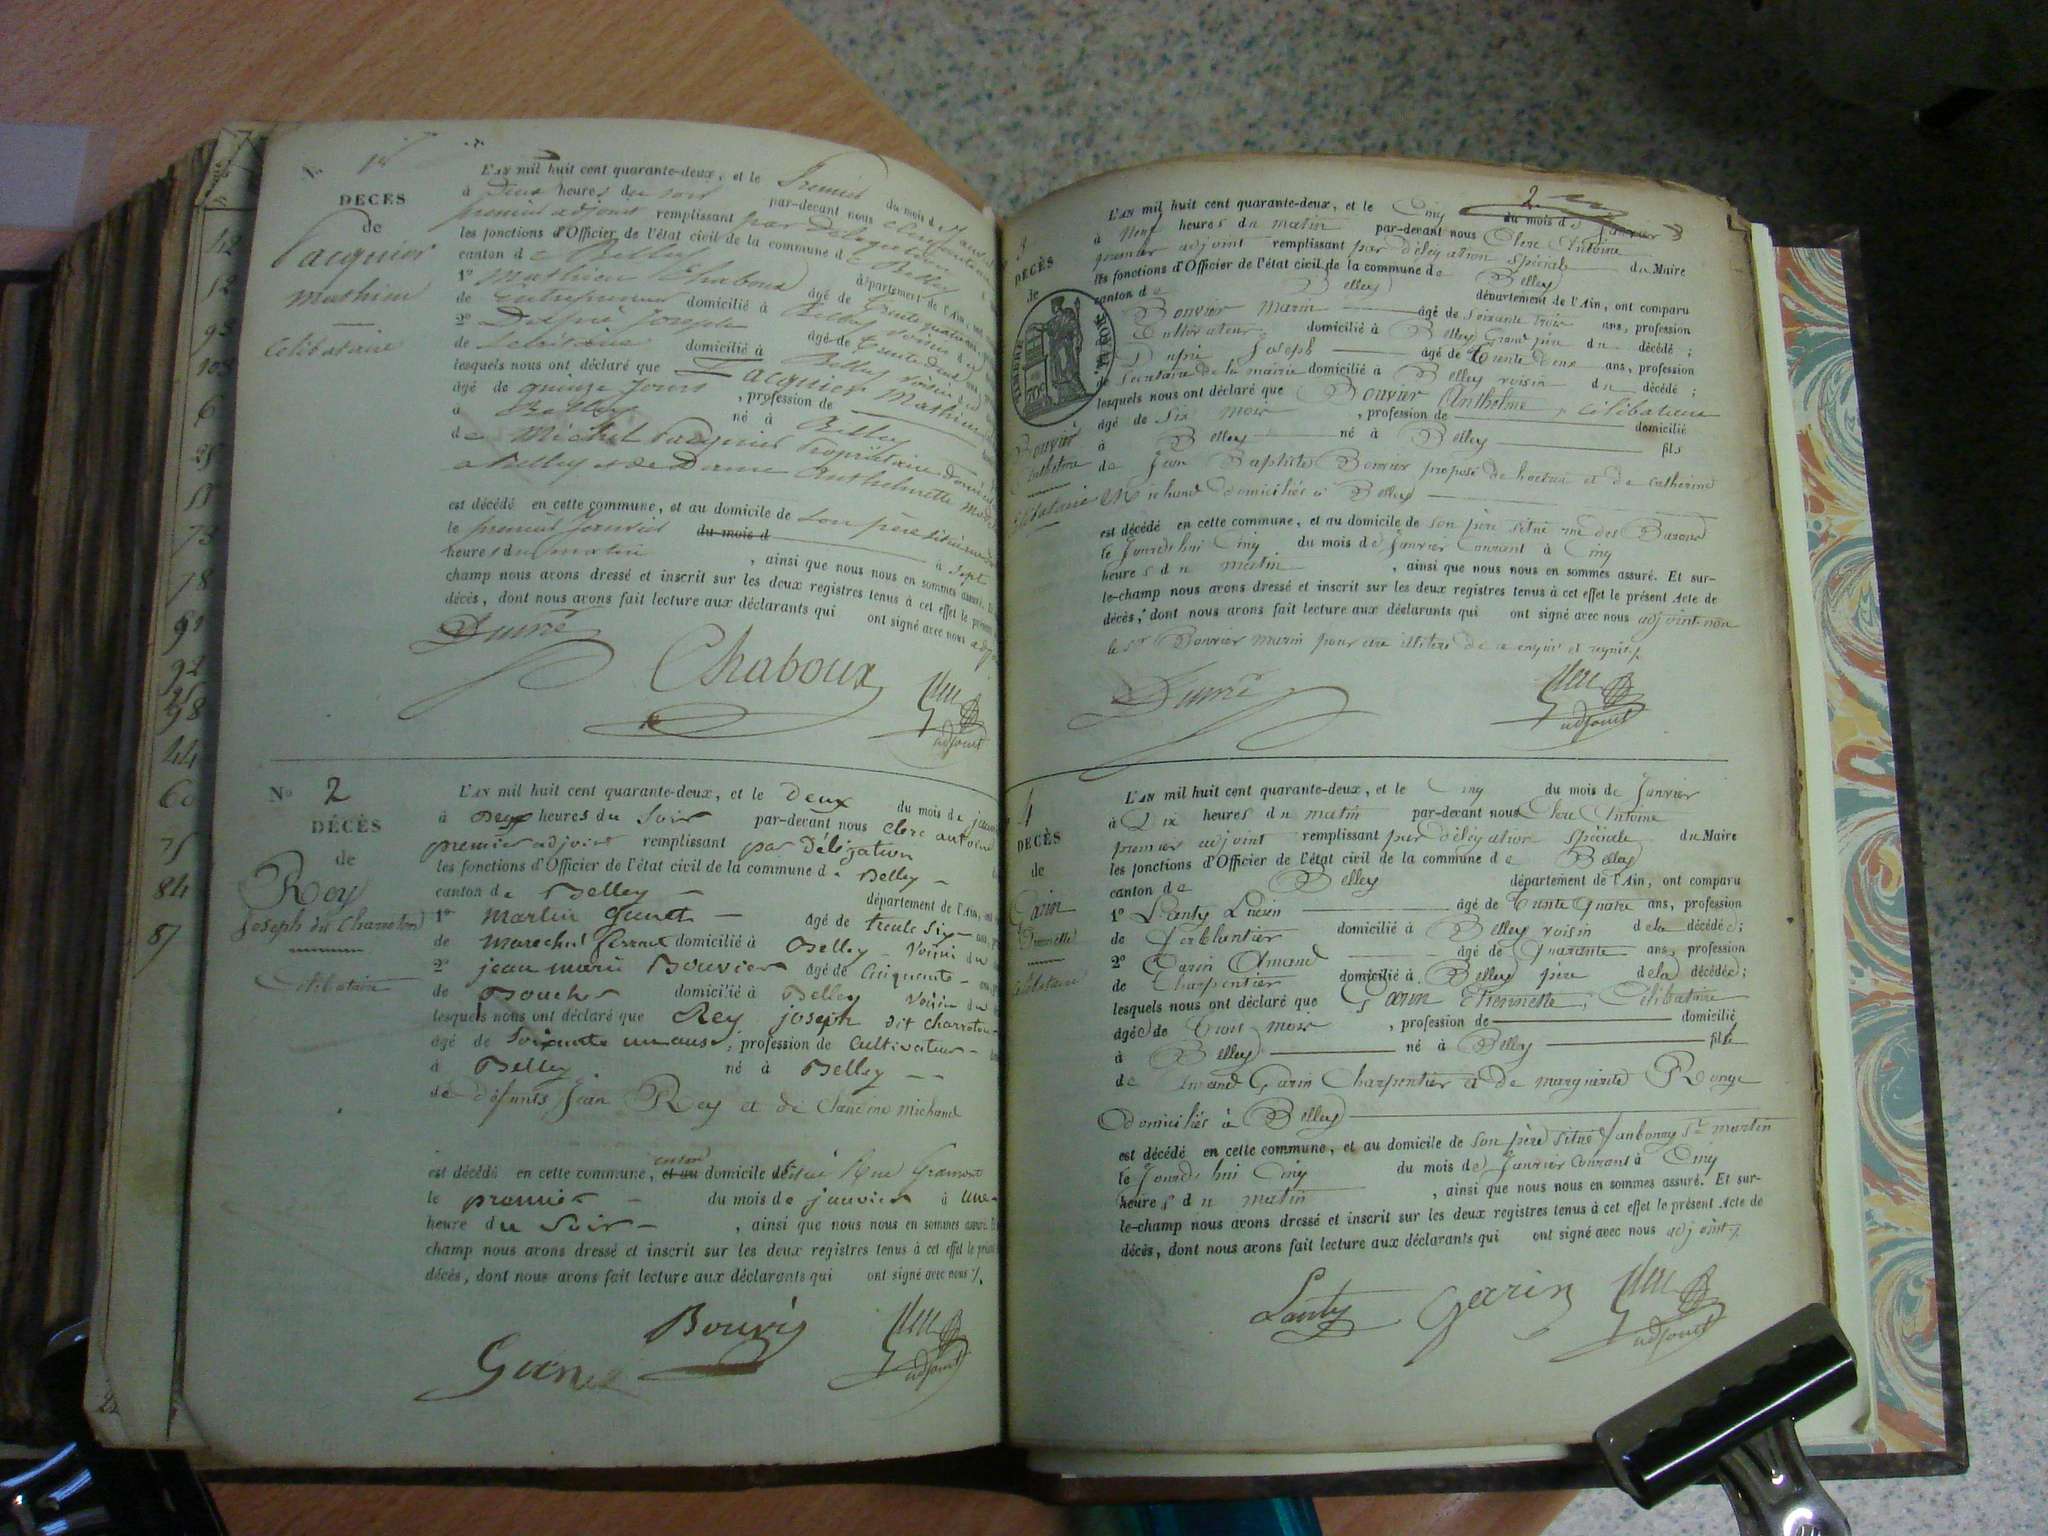 42
52
95
108
6
25
11
73
78
91
92
98
44
60
75
84
87
No 1er
DÉCÈS
de
Pacquier
Mathieu
Célibataire
L'AN mil huit cent quarante-deux, et le Premier du mois d
à Deux heures du soir par-devant nous
premier adjoint remplissant par Délégation
les fonctions d'Officier de l'état civil de la commune de Belley
canton de Belley département de l'Ain,
1º Mathieu Chaboux âgé de trente quatre
de Entrepreneur domicilié à Belley voisin d
2º Dupré Joseph âgé de trente deux
de Secrétaire domicilié à Belley voisin d
lesquels nous ont déclaré que Pacquier Mathieu
âgé de quinze jours, profession de
à Belley né à Belley
de Michel Pacquier Propriétaire
a Belley et de Dame Anthelmette
est décédé en cette commune, et au domicile de son père situé rue
le premier Janvier du mois d à Sept
heures du matin, ainsi que nous nous en sommes assuré. Et
champ nous avons dressé et inscrit sur les deux registres tenus à cet effet le présent
décès, dont nous avons fait lecture aux déclarants qui ont signé avec nous
Dupré
Chaboux
Clerc
adjoint
No 2
DÉCÈS
de
Rey
Joseph dit Charreton
Célibataire
L'AN mil huit cent quarante-deux, et le Deux du mois de
à Deux heures du Soir par-devant nous Clerc antoine
premier adjoint remplissant par Délégation
les fonctions d'Officier de l'état civil de la commune de Belley
canton de Belley département de l'Ain,
1º Martin Gunet âgé de trente six
de Marechal ferrant domicilié à Belley Voisin du
2º jean marie Bouvier âgé de Cinquante
de Boucher domicilié à Belley Voisin du
lesquels nous ont déclaré que Rey joseph dit Charreton
âgé de Soixante un ans, profession de Cultivateur
à Belley né à Belley
de défunts Jean Rey et de Claudine Michaud
est décédé en cette commune, et au domicile situé Rue Gramont
le premier du mois de janvier à une
heure du Soir, ainsi que nous nous en sommes assuré.
champ nous avons dressé et inscrit sur les deux registres tenus à cet effet le présent
décès, dont nous avons fait lecture aux déclarants qui ont signé avec nous
Bouvier
Clerc
adjoint
2
3
DÉCÈS
de
TIMBRE ROYAL
Bouvier
Anthelme
Célibataire
L'AN mil huit cent quarante-deux, et le Cinq du mois de Janvier
à Neuf heures du matin par-devant nous Clerc Antoine
premier adjoint remplissant par délégation Spéciale du Maire
les fonctions d'Officier de l'état civil de la commune de Belley
canton de Belley département de l'Ain, ont comparu
Bouvier Marin âgé de Soixante trois ans, profession
Cultivateur domicilié à Belley Grand père du décédé;
Dupré Joseph âgé de Trente Deux ans, profession
de Secretaire de la mairie domicilié à Belley voisin du décédé;
lesquels nous ont déclaré que Bouvier Anthelme, Célibataire
âgé de Six mois, profession de domicilié
à Belley né à Belley fils
de Jean Baptiste Bouvier préposé de l'octroi et de Catherine
Michaud domiciliés à Belley
est décédé en cette commune, et au domicile de son père situé rue des Barons
le Jourdhui Cinq du mois de Janvier Courant à Cinq
heures du matin, ainsi que nous nous en sommes assuré. Et sur-
le-champ nous avons dressé et inscrit sur les deux registres tenus à cet effet le présent Acte de
décès, dont nous avons fait lecture aux déclarants qui ont signé avec nous adjoint non
le sr Bouvier marin pour être illitéré de ce enquis et requis
Dupré
Clerc
adjoint
4
DÉCÈS
de
Garin
Etiennette
Célibataire
L'AN mil huit cent quarante-deux, et le Cinq du mois de Janvier
à Dix heures du matin par-devant nous Clerc Antoine
premier adjoint remplissant par délégation Spéciale du Maire
les fonctions d'Officier de l'état civil de la commune de Belley
canton de Belley département de l'Ain, ont comparu
1º Lanty Lucien âgé de Trente Quatre ans, profession
de Ferblantier domicilié à Belley voisin de la décédée;
2º Garin Amand âgé de Quarante ans, profession
de Charpentier domicilié à Belley père de la décédée;
lesquels nous ont déclaré que Garin Etiennette, Célibataire
âgée de trois mois, profession de domicilié
à Belley né à Belley fille
de Amand Garin Charpentier et de marguerite Ronge
Domiciliés à Belley
est décédé en cette commune, et au domicile de son père situé faubourg St martin
le Jourdhui Cinq du mois de Janvier Courant à Cinq
heures du matin, ainsi que nous nous en sommes assuré. Et sur-
le-champ nous avons dressé et inscrit sur les deux registres tenus à cet effet le présent Acte de
décès, dont nous avons fait lecture aux déclarants qui ont signé avec nous adjoint
Lanty
Garin
Clerc
adjoint